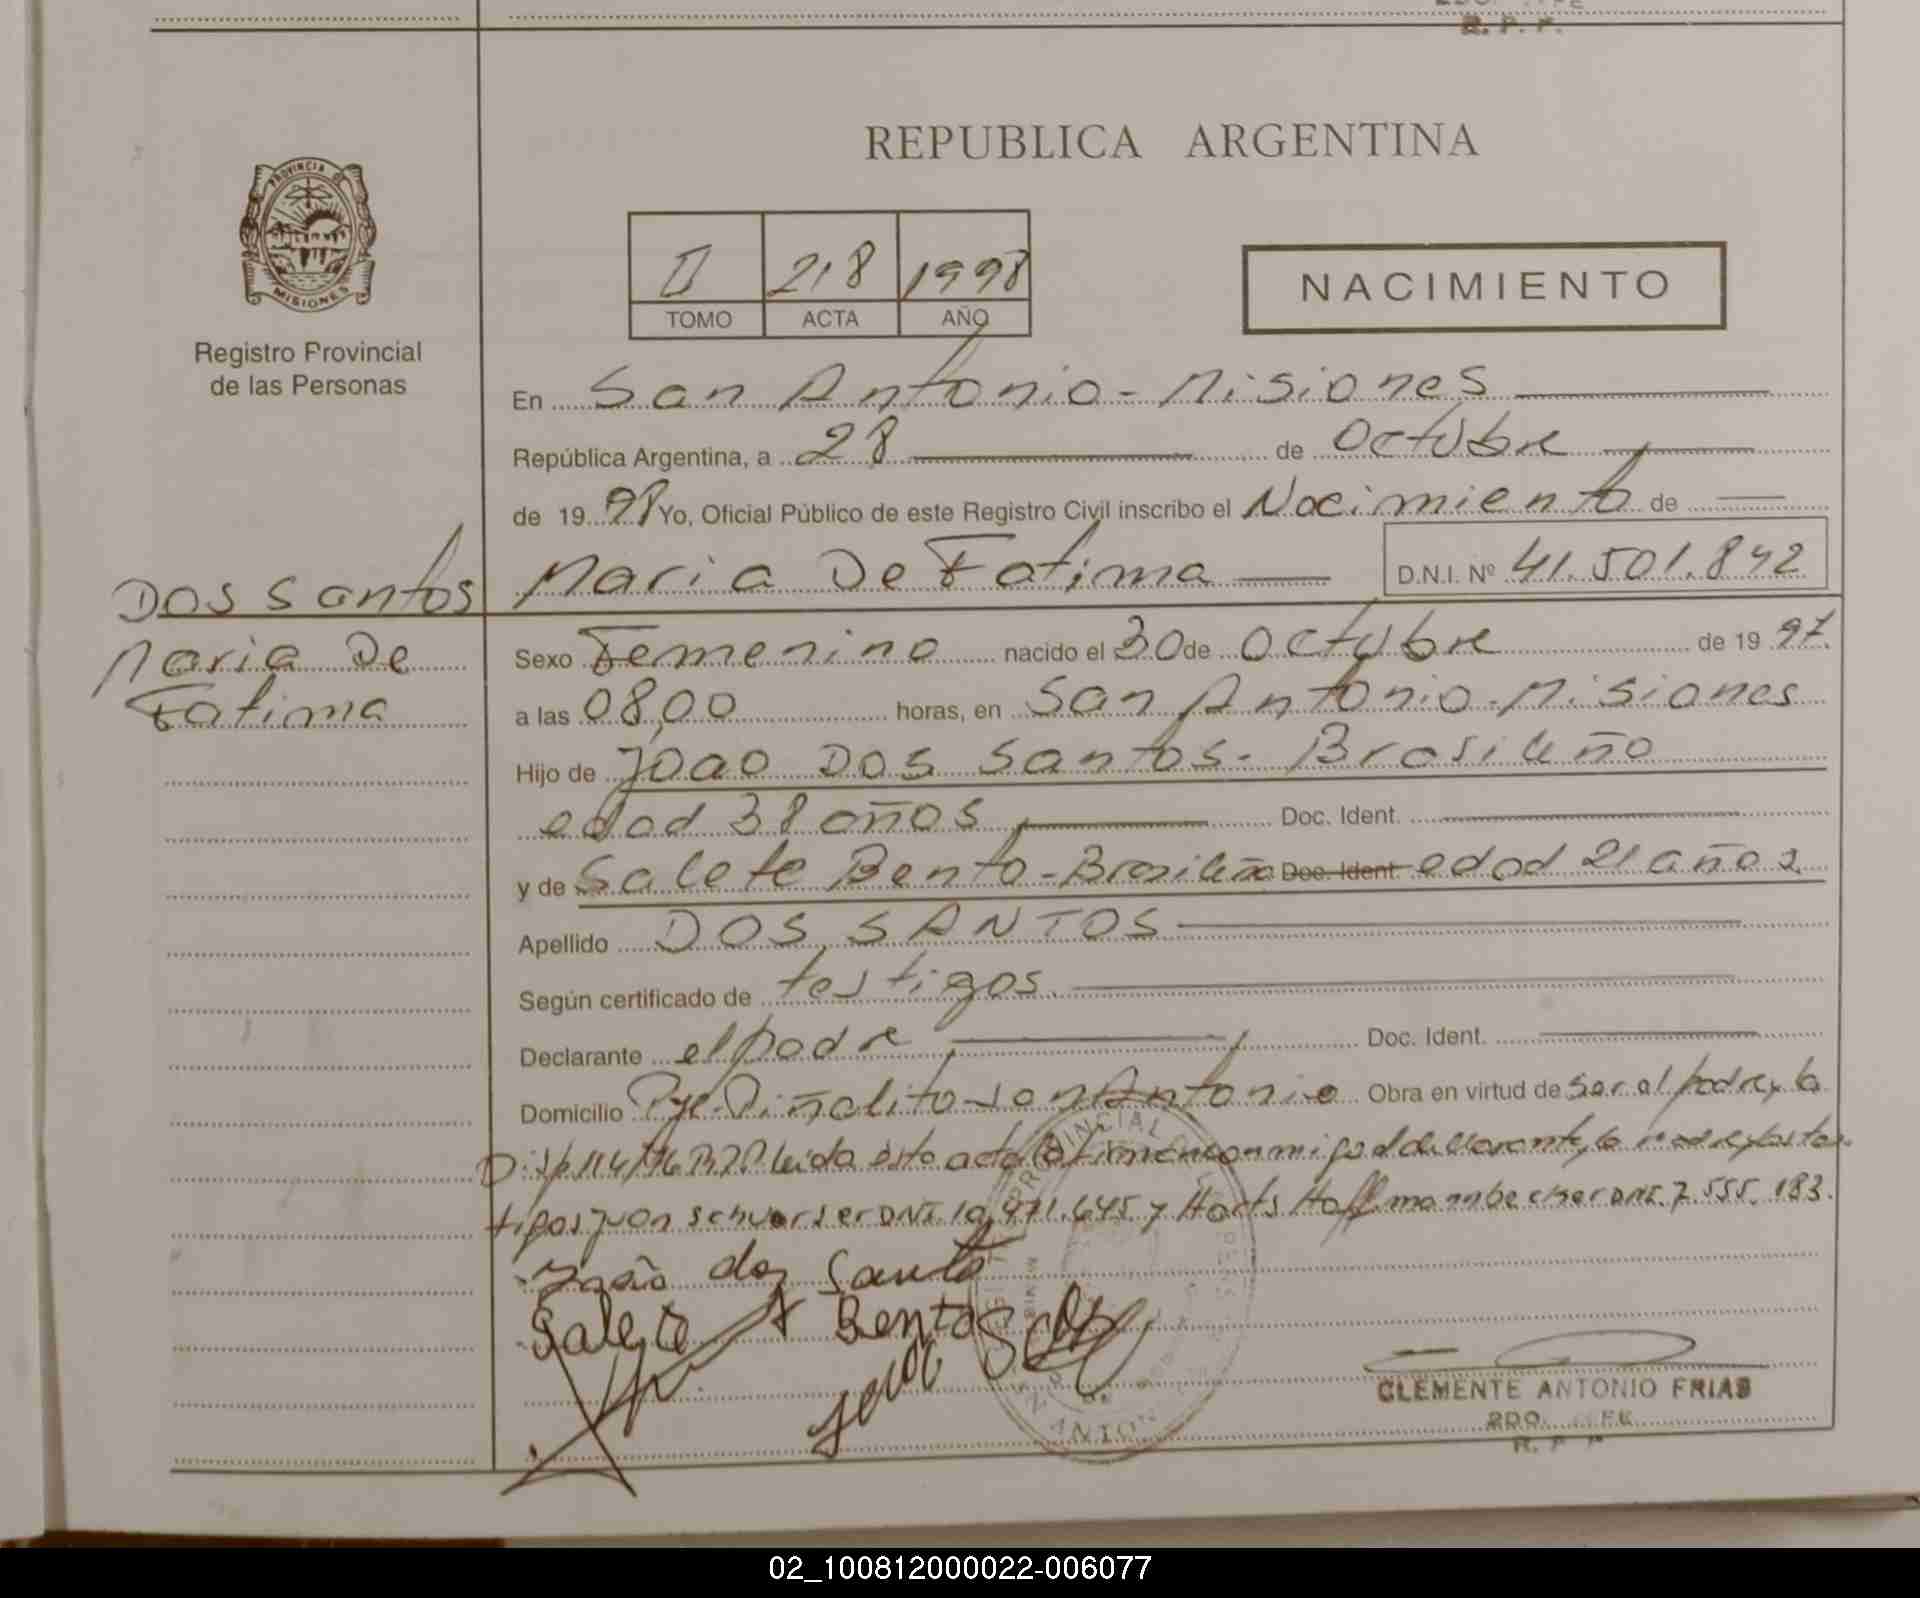 R. P. P.
REPUBLICA ARGENTINA
PROVINCIA DE MISIONES
Registro Provincial
de las Personas
II 218 1998
TOMO ACTA AÑO
NACIMIENTO
En San Antonio - Misiones
República Argentina, a 28 de Octubre
de 19 98 Yo, Oficial Público de este Registro Civil inscribo el Nacimiento de
Maria De Fatima D.N.I. Nº 41.501.842
Dos Santos
Maria De
Fatima
Sexo Femenino nacido el 30 de Octubre de 19 97.
a las 08,00 horas, en San Antonio - Misiones
Hijo de Joao Dos Santos - Brasileño
edad 38 años Doc. Ident.
y de Salete Bento - Brasileña Doc. Ident. edad 21 años
Apellido DOS SANTOS
Según certificado de testigos.
Declarante el padre Doc. Ident.
Domicilio Pje. Piñalito San Antonio Obra en virtud de ser el padre y la
Disp. 114/96 R.P.P. leída esta acta la firman conmigo el declarante, la madre y los tes-
tigos Juan DNI. 10.971.645 y Hoffmann DNI. 7.555.183.
João dos Santo
Salete Bento
CLEMENTE ANTONIO FRIAS
R. P. P.
02_100812000022-006077